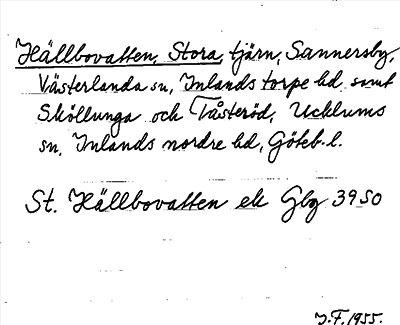 Hällbovatten, Stora, tjärn, Sannersby,
Västerlanda sn, Inlands torpe hd samt
Sköllunga och Tåsteröd, Ucklums
sn, Inlands nordre hd, Göteb.l.
St. Hällbovatten ek Gbg 3950
J.F. 1955.